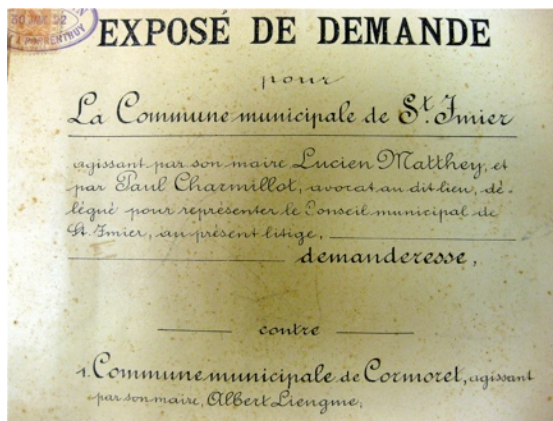 30 22
PORRENTRUY
EXPOSÉ DE DEMANDE
pour
La Commune municipale de St. Imier
agissant par son maire Lucien Matthey, et
par Paul Charmillot, avocat au dit lieu, dé-
légué pour représenter le Conseil municipal de
St. Imier, au présent litige,
demanderesse,
contre
1. Commune municipale de Cormoret, agissant
par son maire, Albert Liengme;